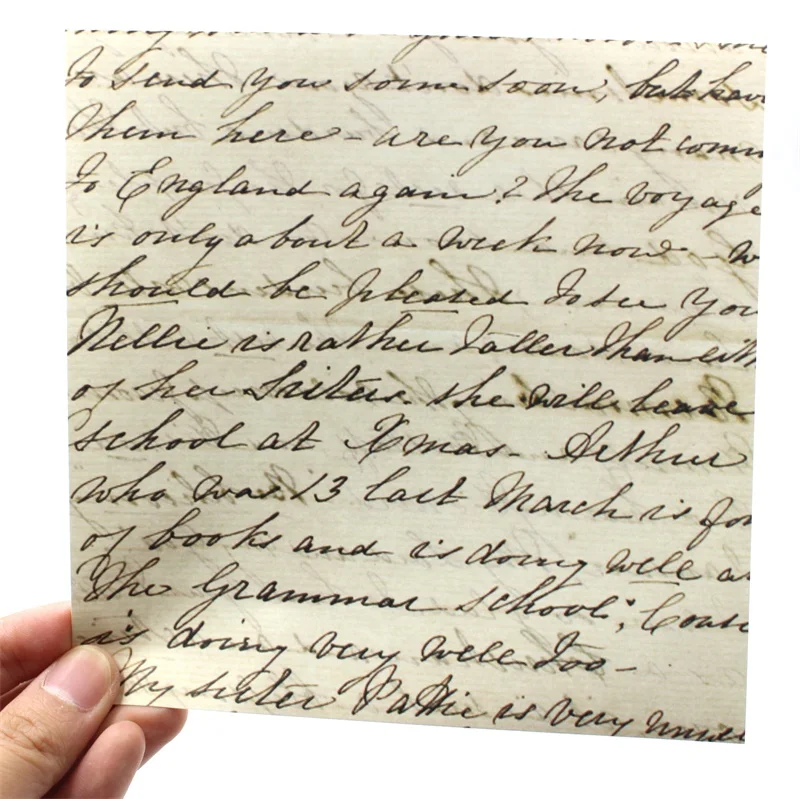 to send you some soon, but hav
them here - are you not comin
to England again? The voyage
is only about a week now - w
should be pleased to see you
Nellie is rather taller than eith
of her Sisters. she will leave
school at Xmas - Arthur
who was 13 last March is fon
of books and is doing well a
The Grammar school,
is doing very well too -
My sister Pattie is very